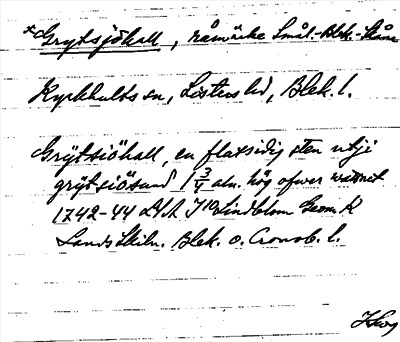 *Grytsjöhall, råmärke Smål.-Blek.-Skåne
Kyrkhults sn, Listers hd, Blek. l.
Grÿtsiöhall, en flatsidig sten utji
grÿtsiösund 1 3/4 aln. hög ofwer wattnet
1742-44 LSA J 10 Lindblom Geom. K
Lands Skiln. Blek. o. Cronob. l.